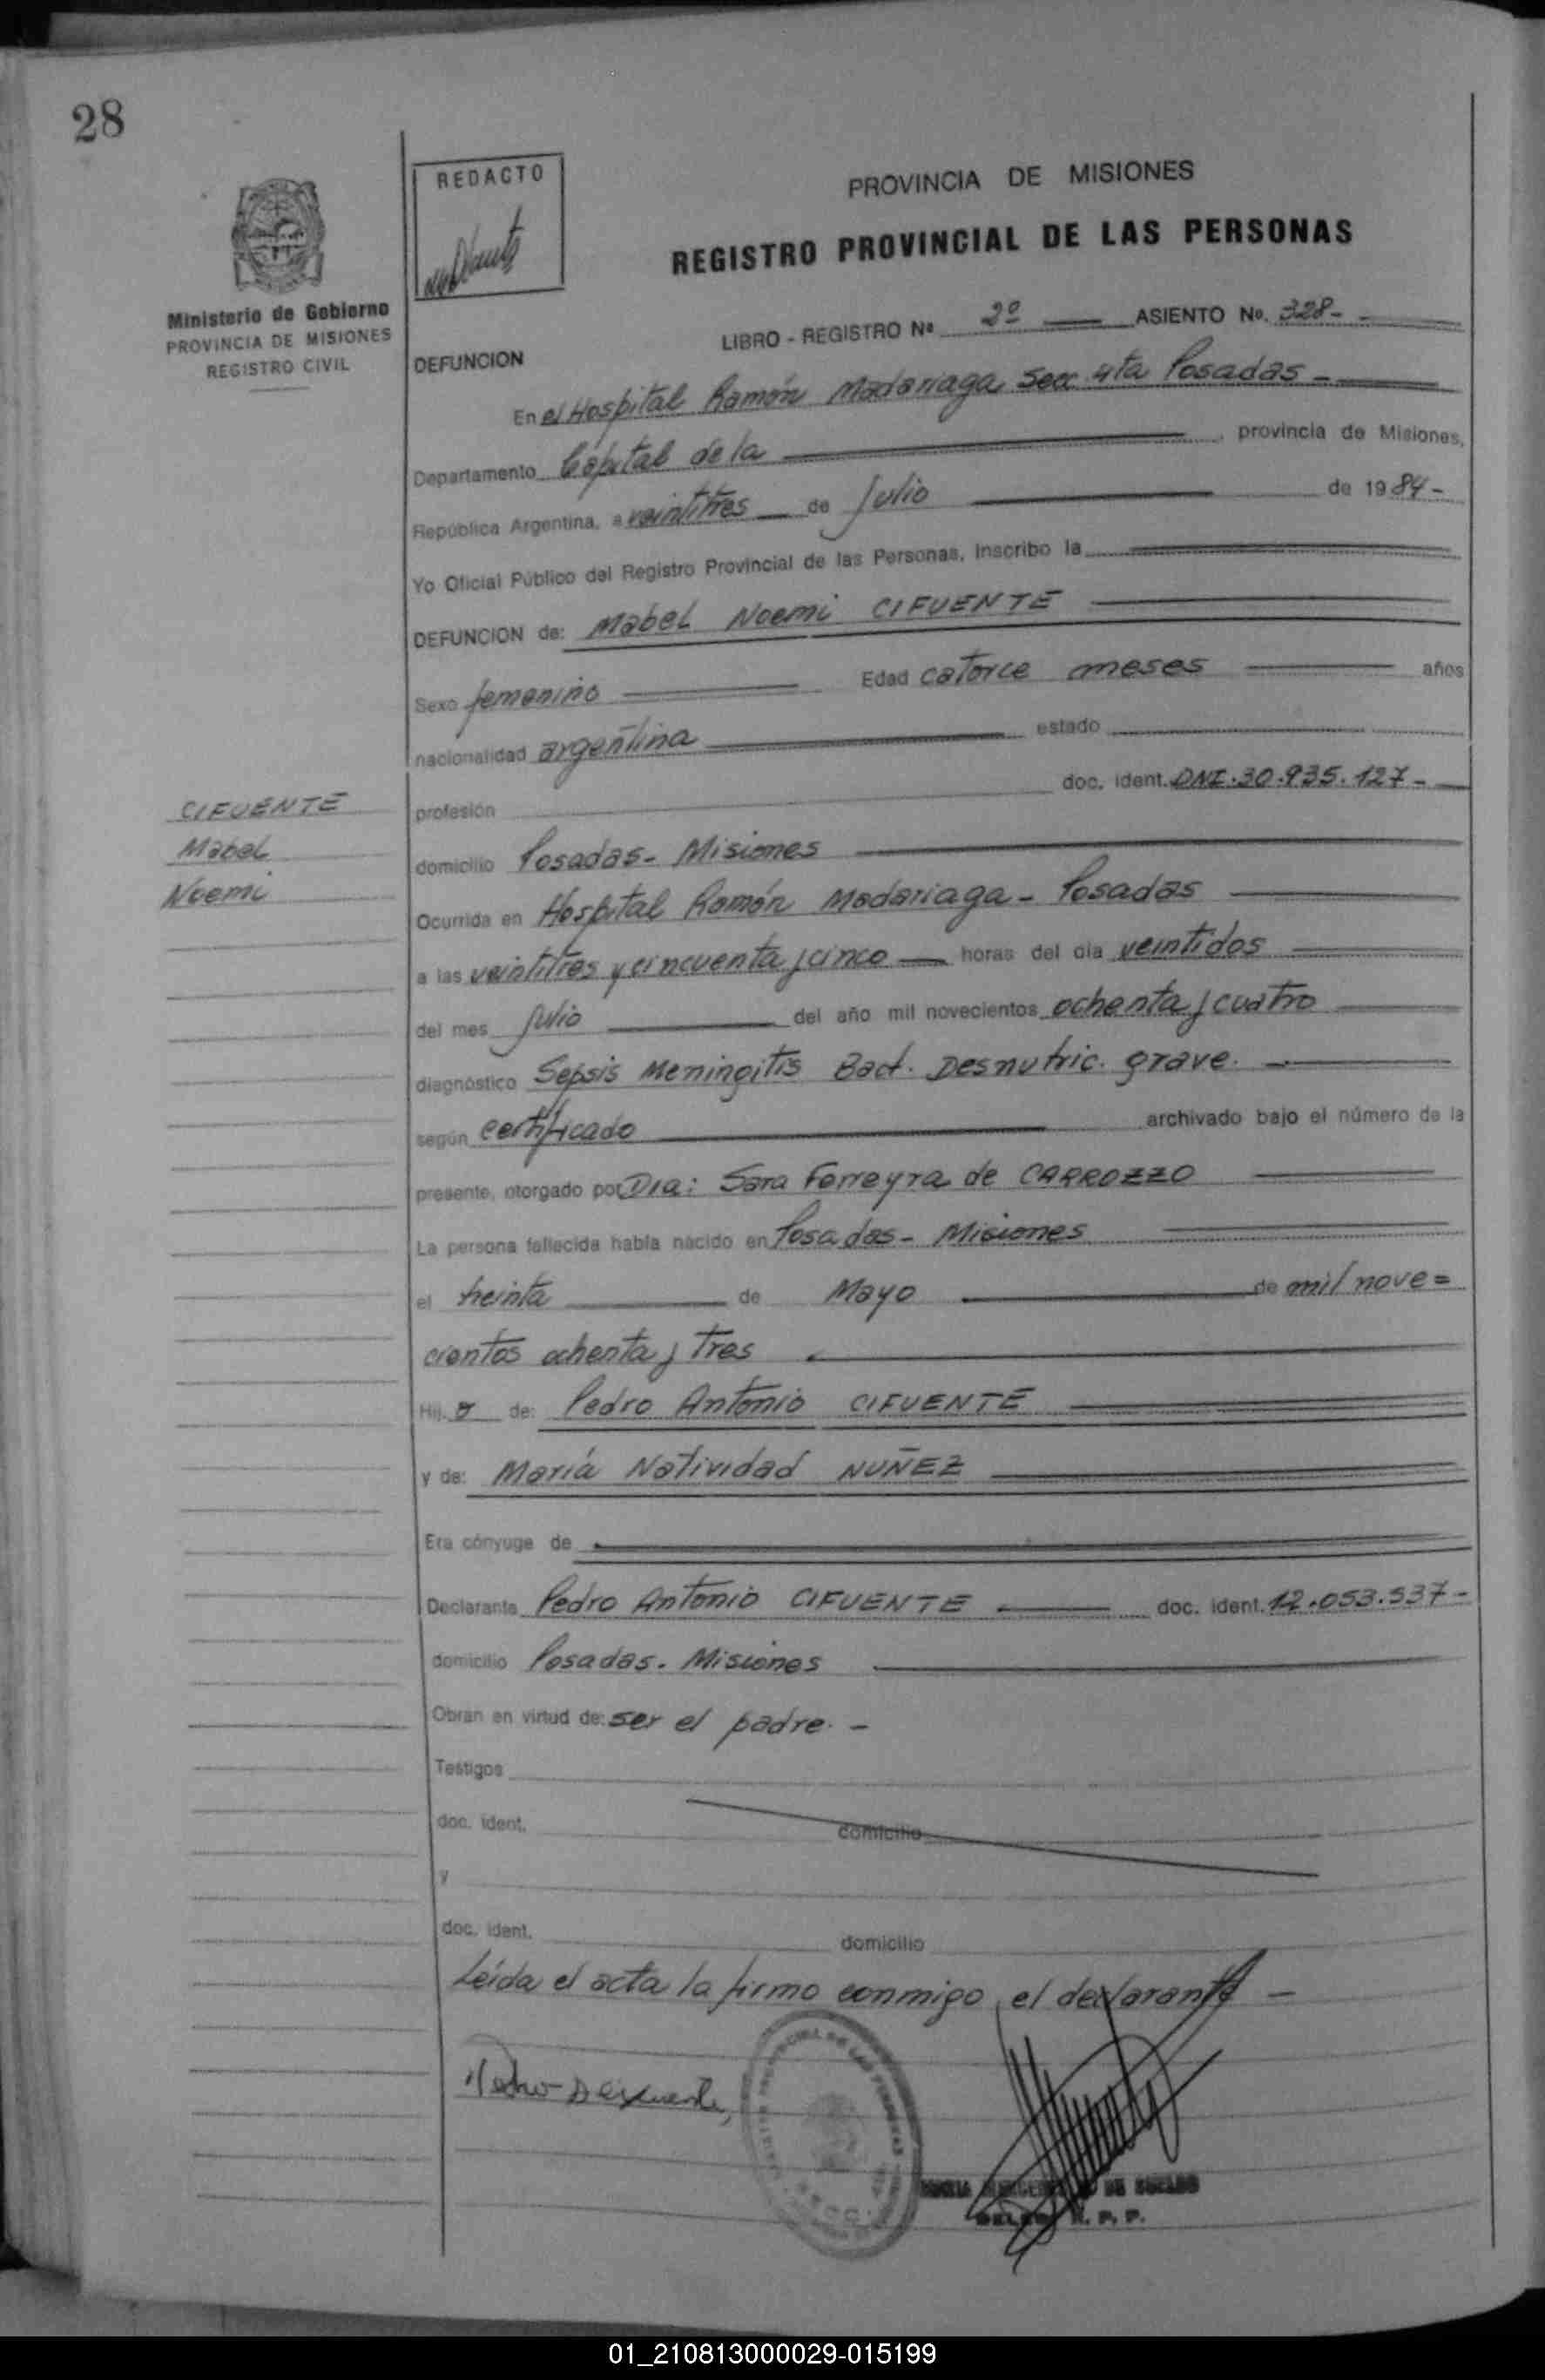 28
REDACTO
PROVINCIA DE MISIONES
REGISTRO PROVINCIAL DE LAS PERSONAS
Ministerio de Gobierno
PROVINCIA DE MISIONES
REGISTRO CIVIL
LIBRO - REGISTRO Nº 2º ASIENTO No. 328-
DEFUNCION
En el Hospital Ramón Madariaga Secc 4ta Posadas -
Departamento Capital de la , provincia de Misiones,
República Argentina, a veintitres de Julio de 1984-
Yo Oficial Público del Registro Provincial de las Personas, inscribo la
DEFUNCION de: Mabel Noemi CIFUENTE
Sexo femenino Edad catorce meses años
nacionalidad argentina estado
profesión doc. ident. DNI.30.935.127-
CIFUENTE
Mabel
Noemi
domicilio Posadas- Misiones
Ocurrida en Hospital Ramón Madariaga - Posadas
a las veintitres y cincuenta y cinco horas del día veintidos
del mes Julio del año mil novecientos ochenta y cuatro
diagnóstico Sepsis Meningitis Bact. Desnutric. grave.
según certificado archivado bajo el número de la
presente, otorgado por Dra: Sara Ferreyra de CARROZZO
La persona fallecida había nacido en Posadas- Misiones
el treinta de Mayo de mil nove=
cientos ochenta y tres
Hij. a de: Pedro Antonio CIFUENTE
y de: María Natividad NUÑEZ
Era cónyuge de
Declarante Pedro Antonio CIFUENTE doc. ident. 12.053.537-
domicilio Posadas. Misiones
Obran en virtud de: ser el padre. -
Testigos
doc. ident. domicilio
y
doc. ident. domicilio
Leída el acta la firmo conmigo, el declarante -
DE
R. P. P.
01_210813000029-015199